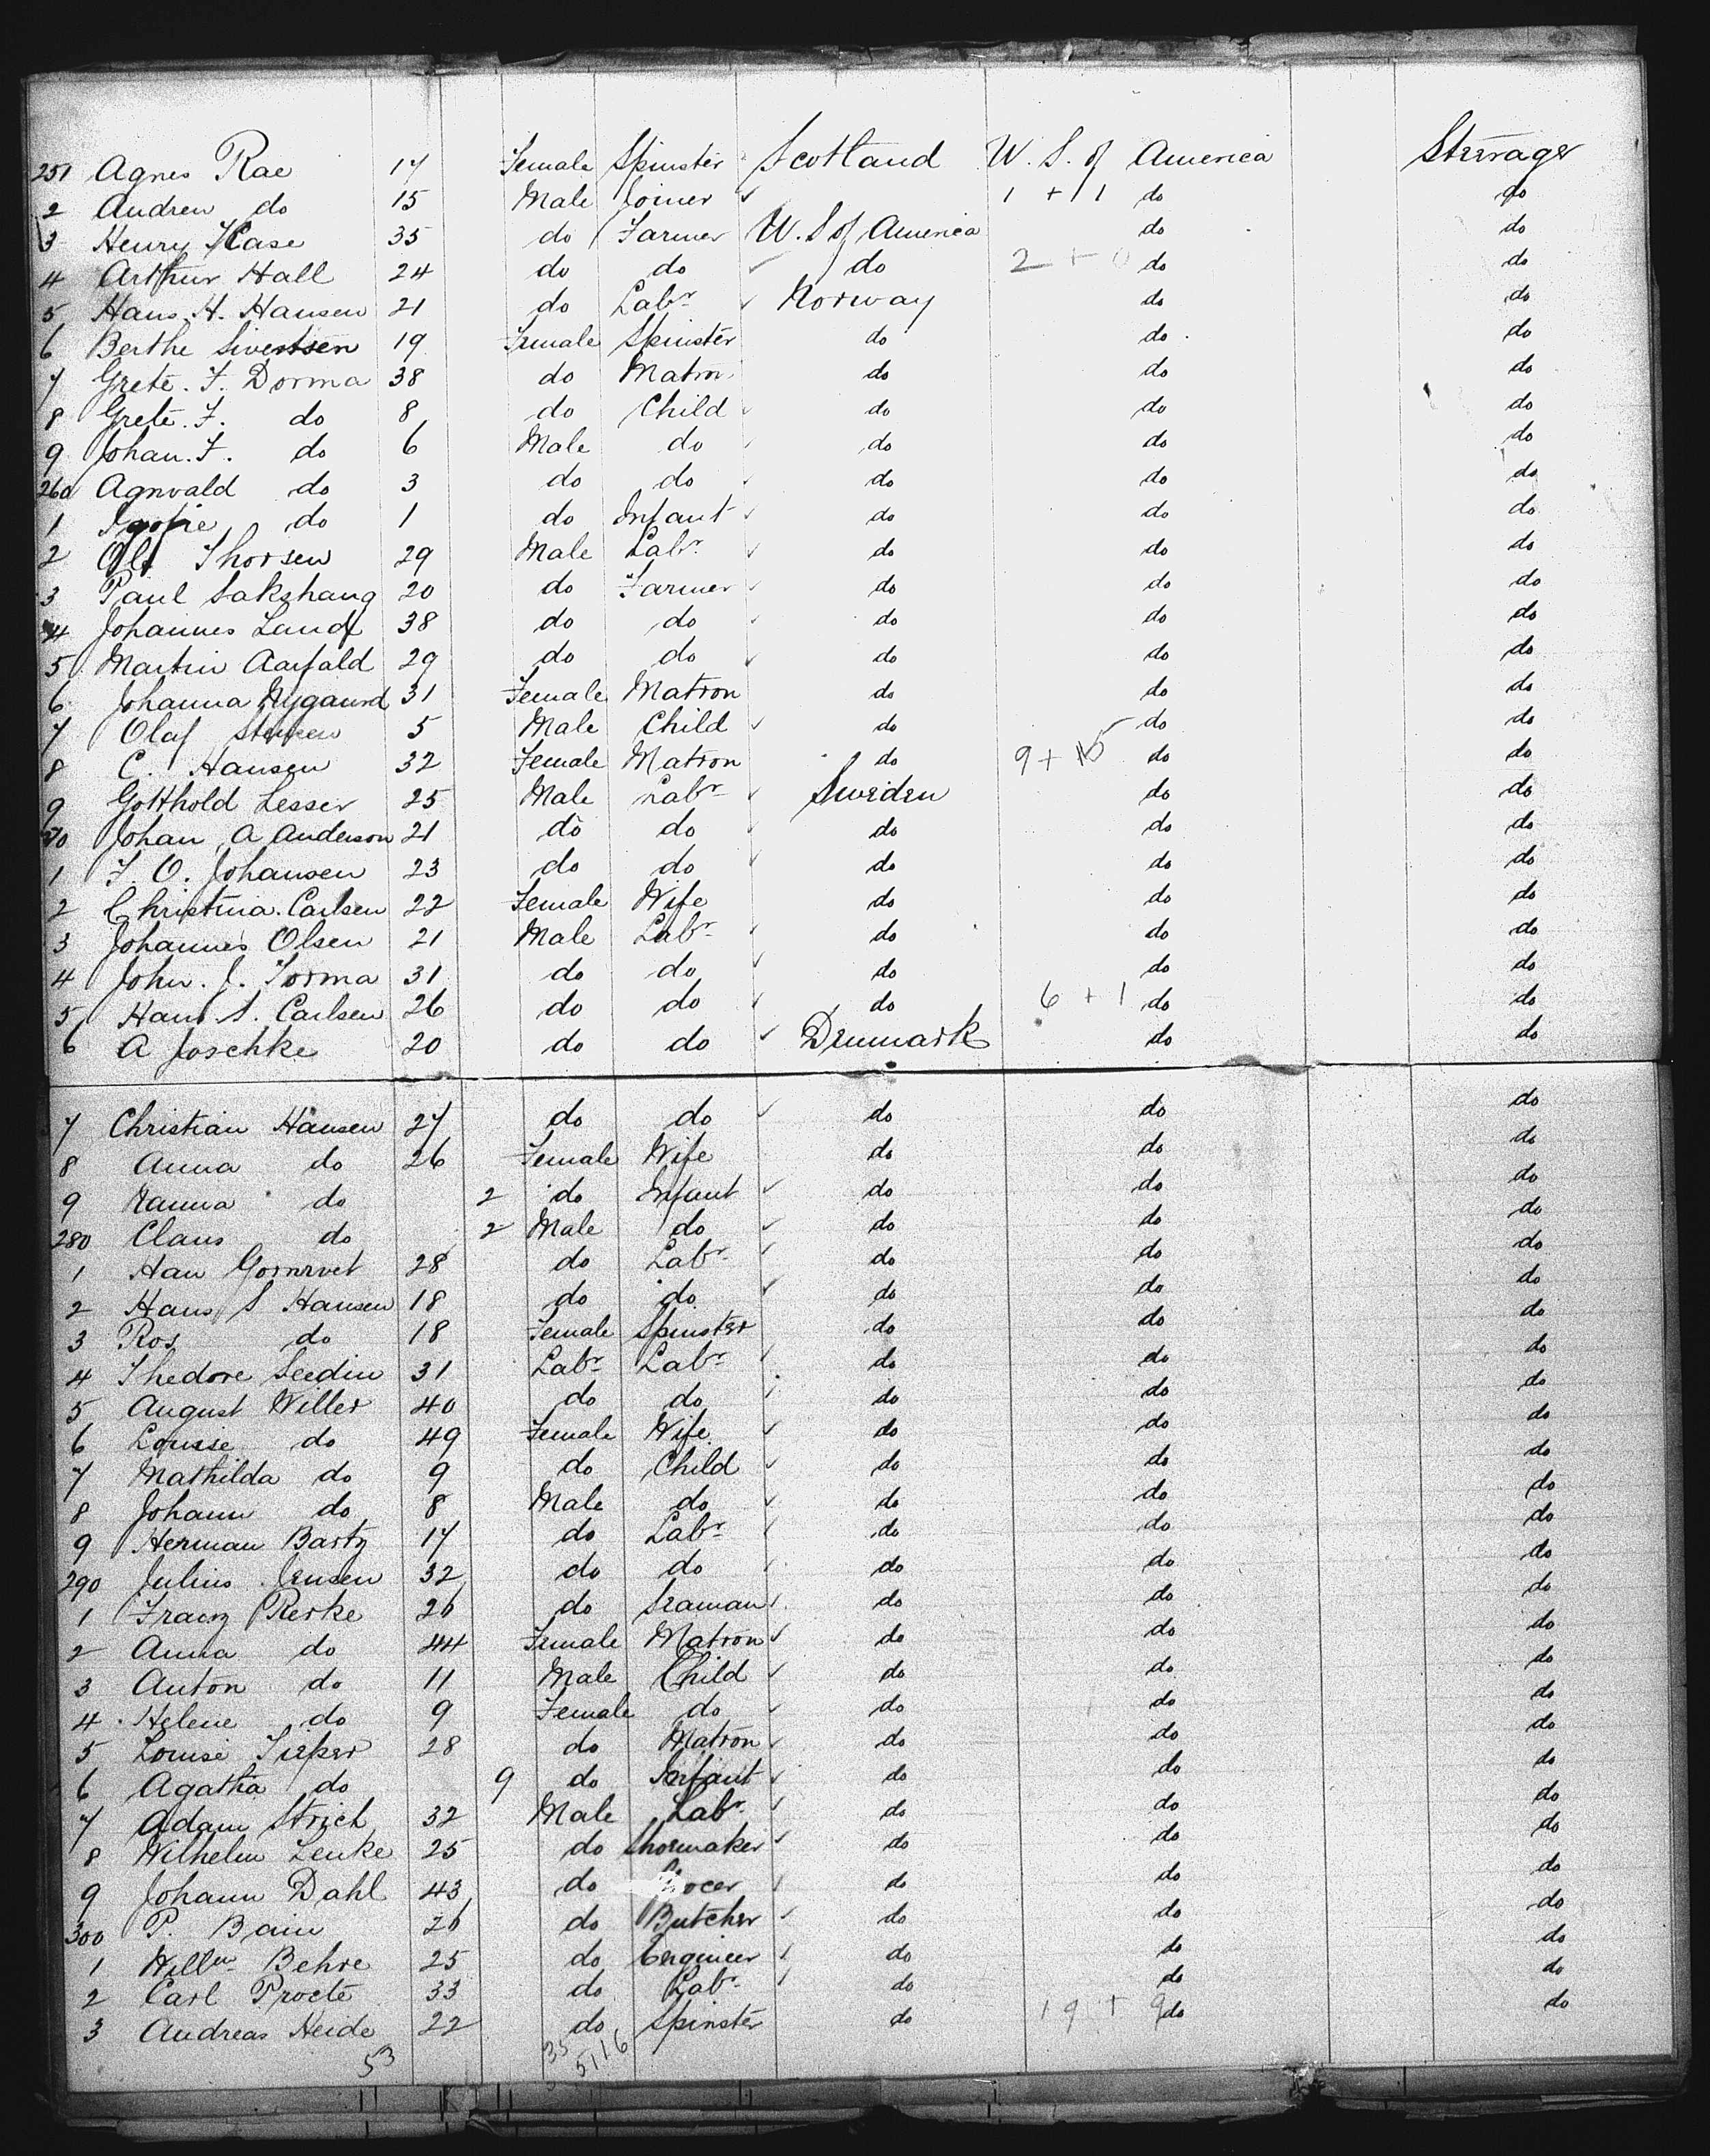 251 Agnes Rae 17 Female Spinster Scotland W. S. of America Steerage
2 Andrew do 15 Male Joiner 1 + 11 do do
3 Henry Kase 35 do Farmer W. S of America do do
4 Arthur Hall 24 do do do 2 + 0 do do
5 Hans. H. Hansen 21 do Labr Norway do do
6 Berthe Sivertsen 19 Female Spinster do do do
7 Grete. F. Dorma 38 do Matron do do do
8 Grete. F. do 8 do Child do do do
9 Johan. F. do 6 Male do do do do
260 Agnvald do 3 do do do do do
1 do 1 do Infant do do do
2 Ole Thorsen 29 Male Labr do do do
3 Paul Sakshaug 20 do Farmer do do do
4 Johannes 38 do do do do do
5 Martin Aarfald 29 do do do do do
6 Johanna Nygaurd 31 Female Matron do do do
7 Olaf 5 Male Child do do do
8 C. Hansen 32 Female Matron do 9 + 15 do do
9 Gotthold Lesser 25 Male Labr Sweden do do
270 Johan A Anderson 21 do do do do do
1 F. O. Johansen 23 do do do do do
2 Christina. Carlsen 22 Female Wife do do do
3 Johannes Olsen 21 Male Labr do do do
4 John. J. Torma 31 do do do do do
5 Hans. S. Carlsen 26 do do do 6 + 1 do do
6 A Joschke 20 do do Denmark do do
7 Christian Hansen 27 do do do do do
8 Anna do 26 Female Wife do do do
9 Nanna do 2 do Infant do do do
280 Claus do 2 Male do do do do
1 Han 28 do Labr do do do
2 Hans S Hansen 18 do do do do do
3 Ros do 18 Female Spinster do do do
4 Thedore Seedin 31 Labr Labr do do do
5 August Willer 40 do do do do do
6 Louise do 49 Female Wife do do do
7 Mathilda do 9 do Child do do do
8 Johann do 8 Male do do do do
9 Herman Bartz 17 do Labr do do do
290 Julius Jensen 32 do do do do do
1 Franz Reske 26 do Seaman do do do
2 Anna do 44 Female Matron do do do
3 Anton do 11 Male Child do do do
4 Helene do 9 Female do do do do
5 Louise Tieper 28 do Matron do do do
6 Agatha do 9 do Infant do do do
7 Adam Strich 32 Male Labr do do do
8 Wilhelm Lenke 25 do Shoemaker do do do
9 Johann Dahl 43 do Grocer do do do
300 P. Bain 26 do Butcher do do do
1 Willm Behre 25 do Engineer do do do
2 Carl Procte 33 do Labr do do do
3 Andreas Heide 22 do Spinster do 19 + 9 do do
53 35 5116